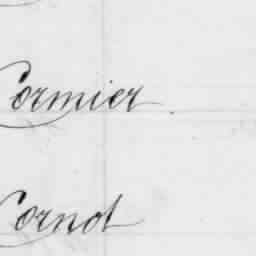 Cormier
Cornot